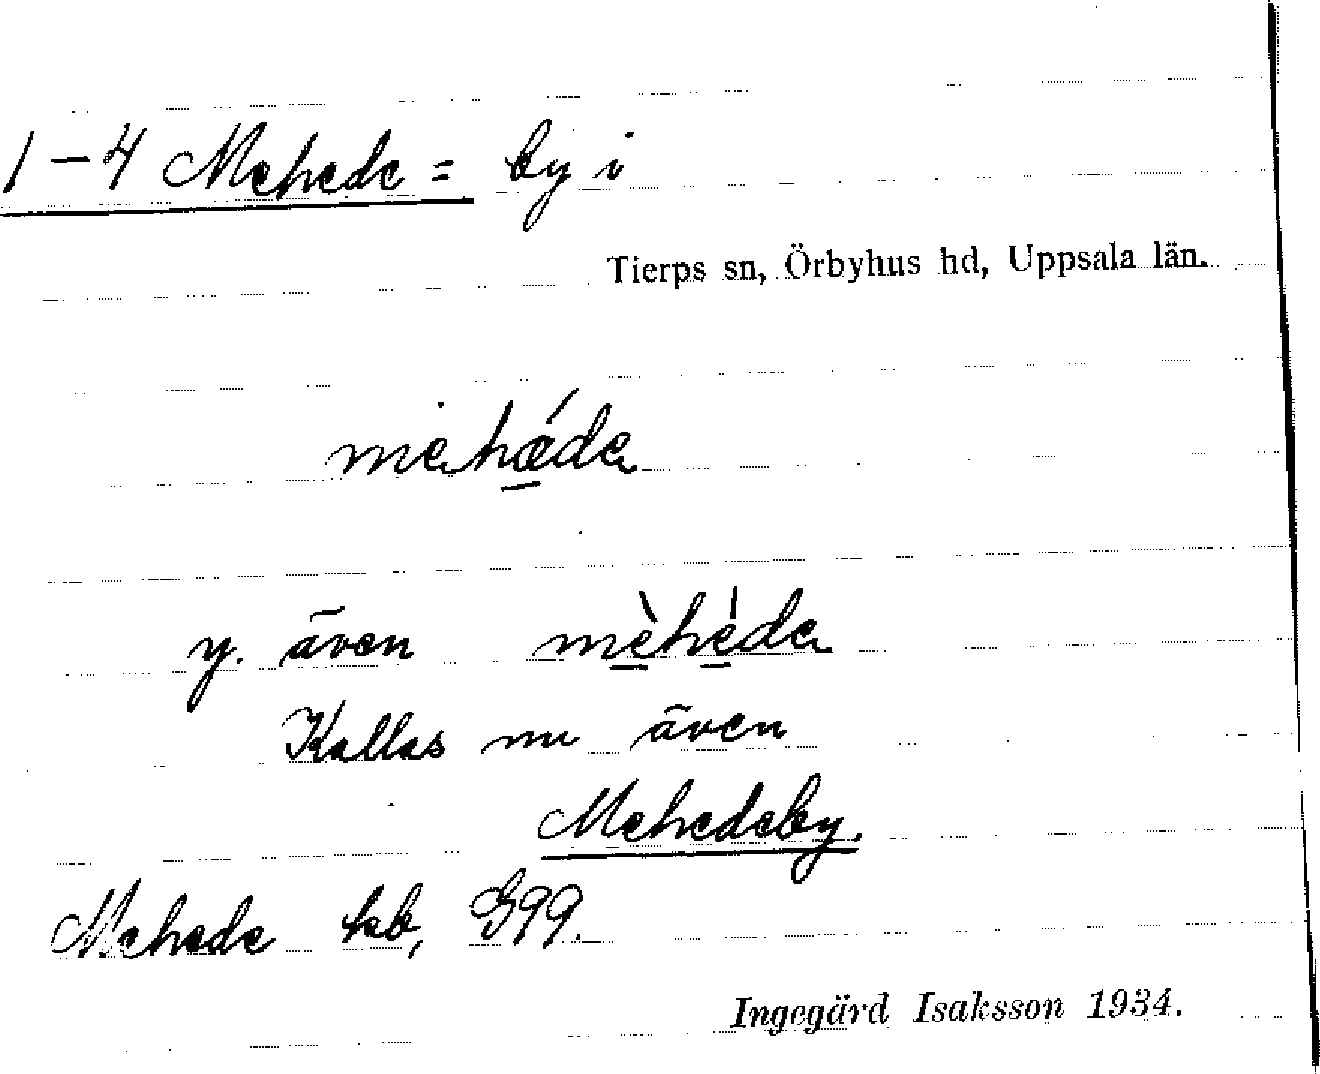 1–4 Mehede = by i
Tierps sn, Örbyhus hd, Uppsala län.
mehǽde
y. även mèhède
Kallas nu även
Mehedeby.
Mehede kb, G99.
Ingegärd Isaksson 1934.